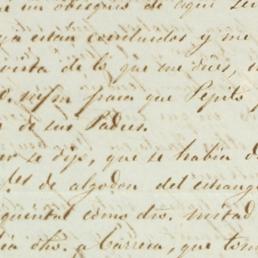 un obsequio de aqui
ya estan concluidos y me
vista de lo que me dices,
para que Pepito
de sus Padres.
se dijo, que se habia
q.les de algodon del estrang
quintal como dro. mitad
dho. a Carrera, que tom